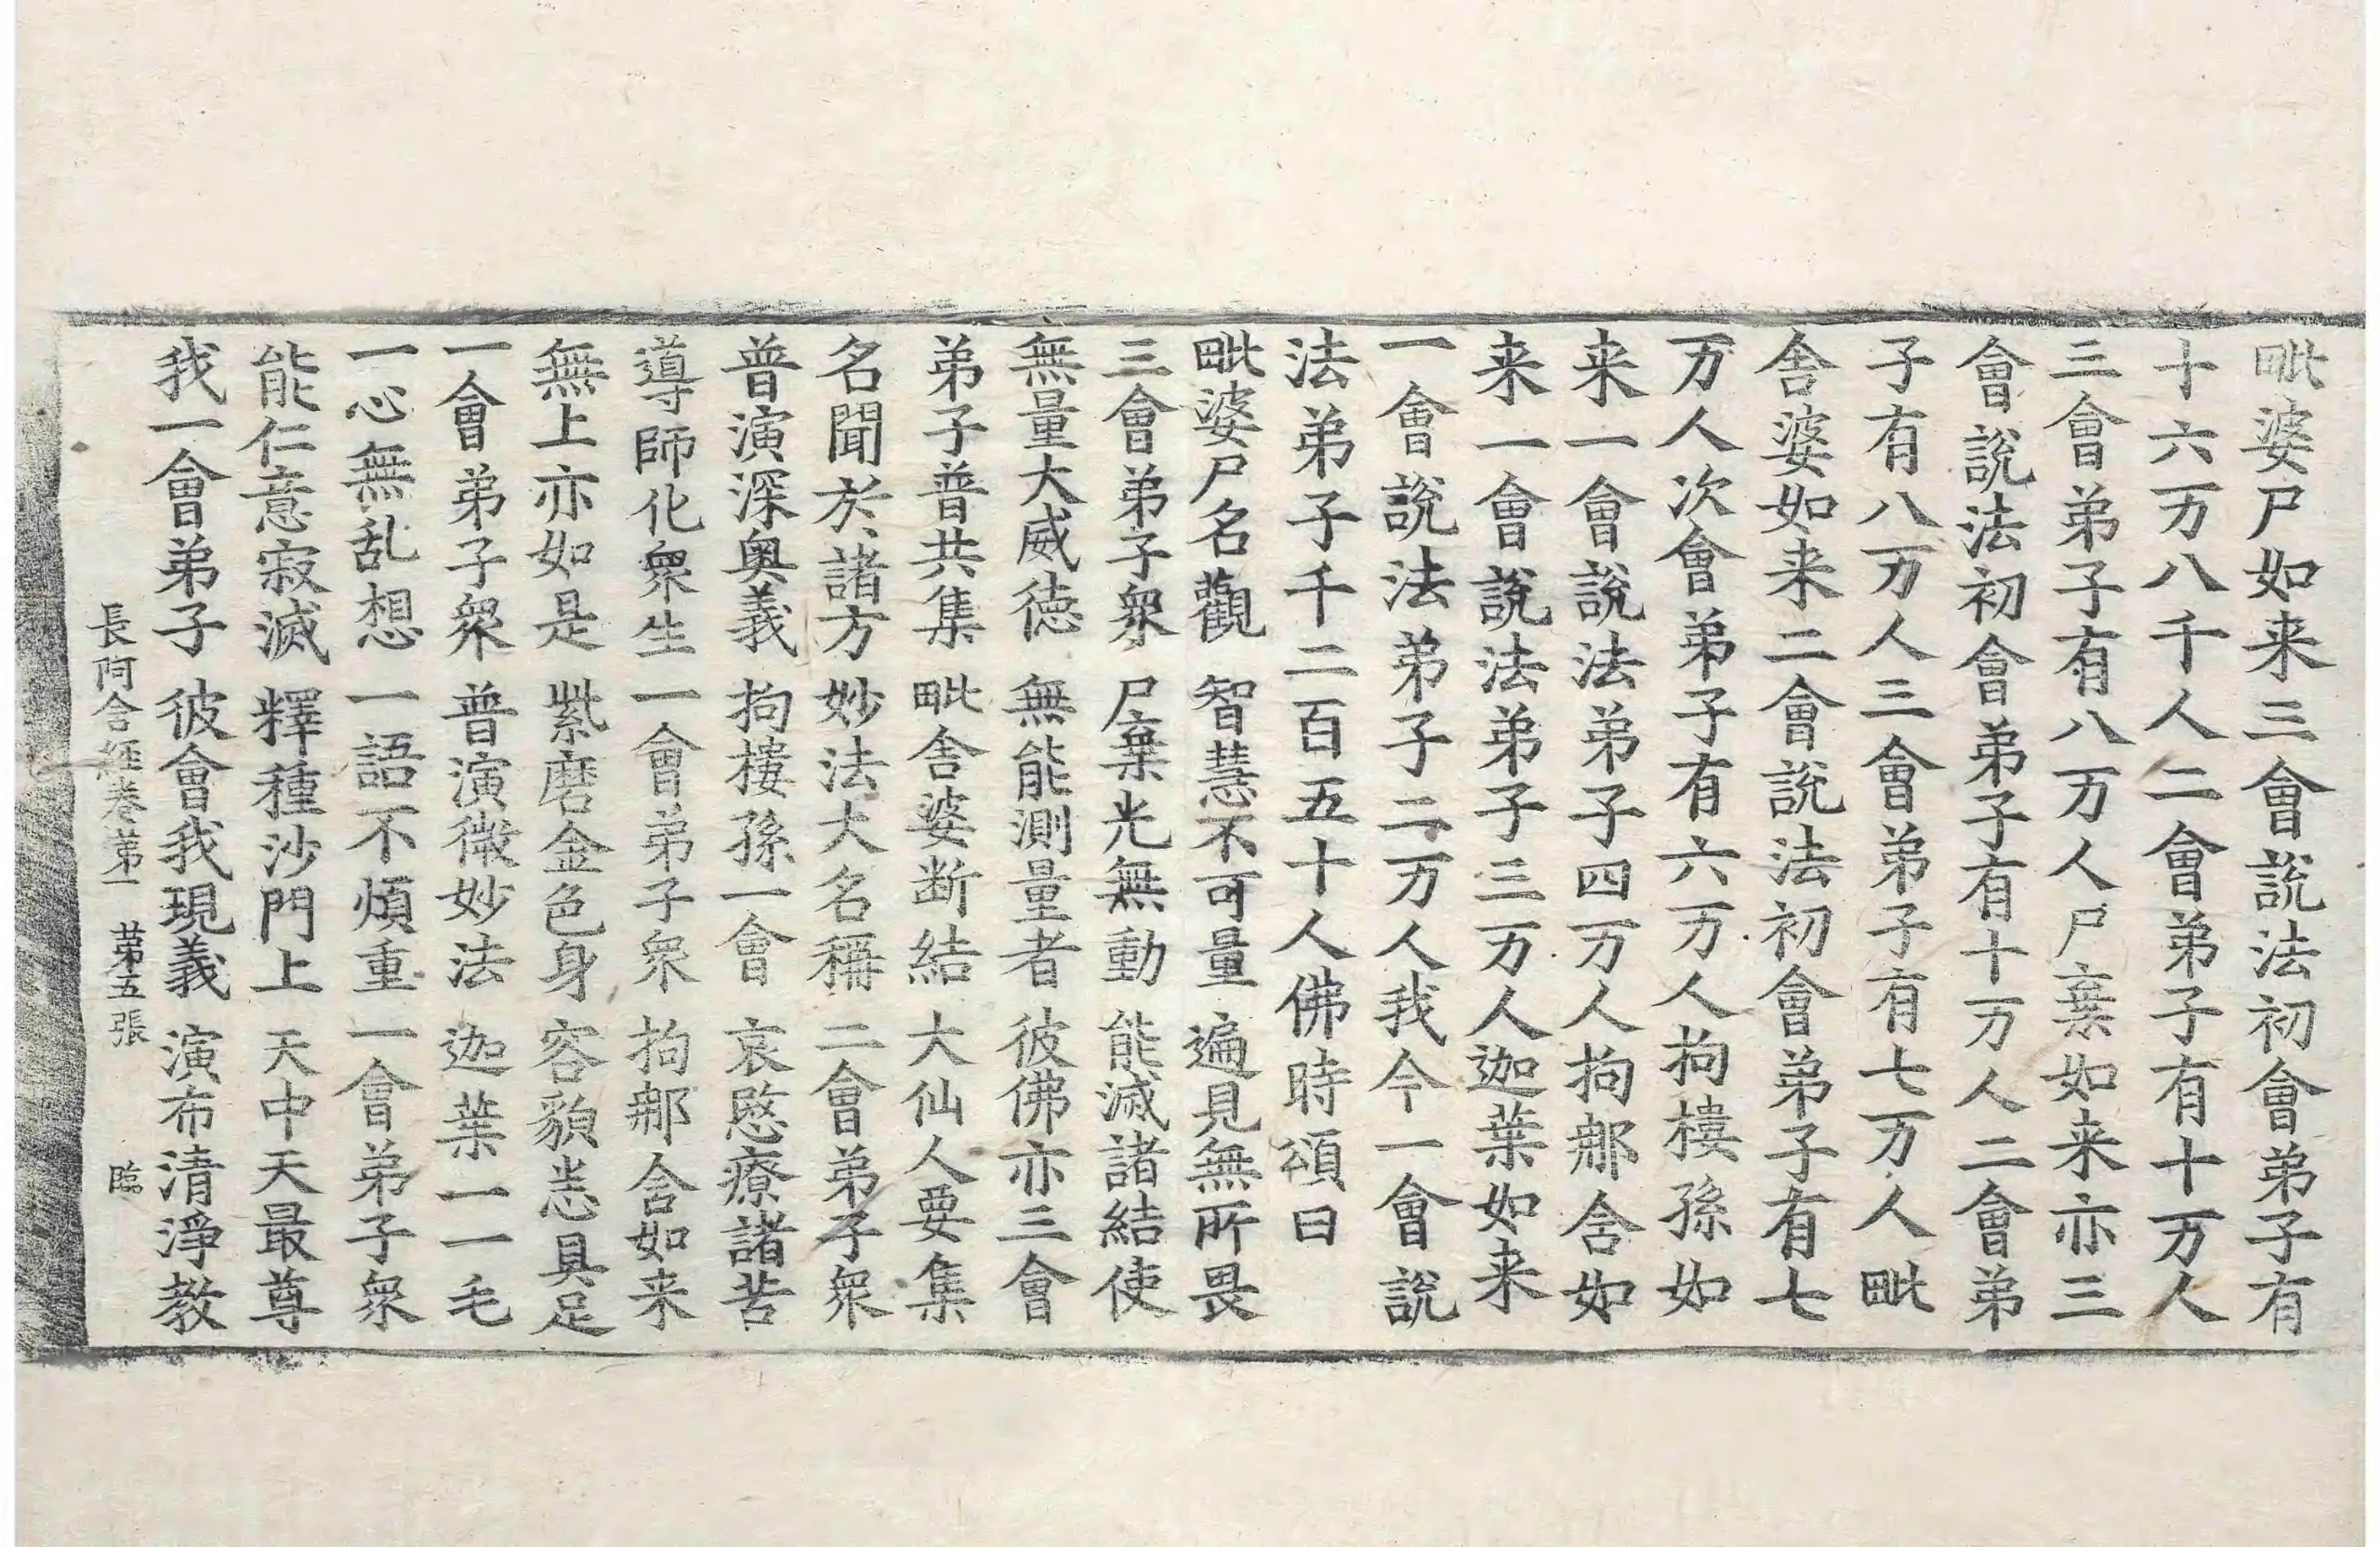 毗婆尸如来三會說法初會弟子有
十六万八千人二會弟子有十万人
三會弟子有八万人尸棄如来亦三
會說法初會弟子有十万人二會弟
子有八万人三會弟子有七万人毗
舍婆如来二會說法初會弟子有七
万人次會弟子有六万人拘樓孫如
来一會說法弟子四万人拘那舍如
来一會說法弟子三万人迦葉如来
一會說法弟子二万人我今一會說
法弟子千二百五十人佛時頌曰
毗婆尸名觀 智慧不可量 遍見無所畏
三會弟子衆 尸棄光無動 能滅諸結使
無量大威德 無能測量者 彼佛亦三會
弟子普共集 毗舍婆断結 大仙人要集
名聞於諸方 妙法大名稱 二會弟子衆
普演深奥義 拘樓孫一會 哀愍療諸苦
導師化衆生 一會弟子衆 拘那含如来
無上亦如是 紫磨金色身 容貌悉具足
一會弟子衆 普演微妙法 迦葉一一毛
一心無乱想 一語不煩重 一會弟子衆
能仁意寂滅 釋種沙門上 天中天最尊
我一會弟子 彼會我現義 演布清淨教
長阿含經卷第一 第五張 臨